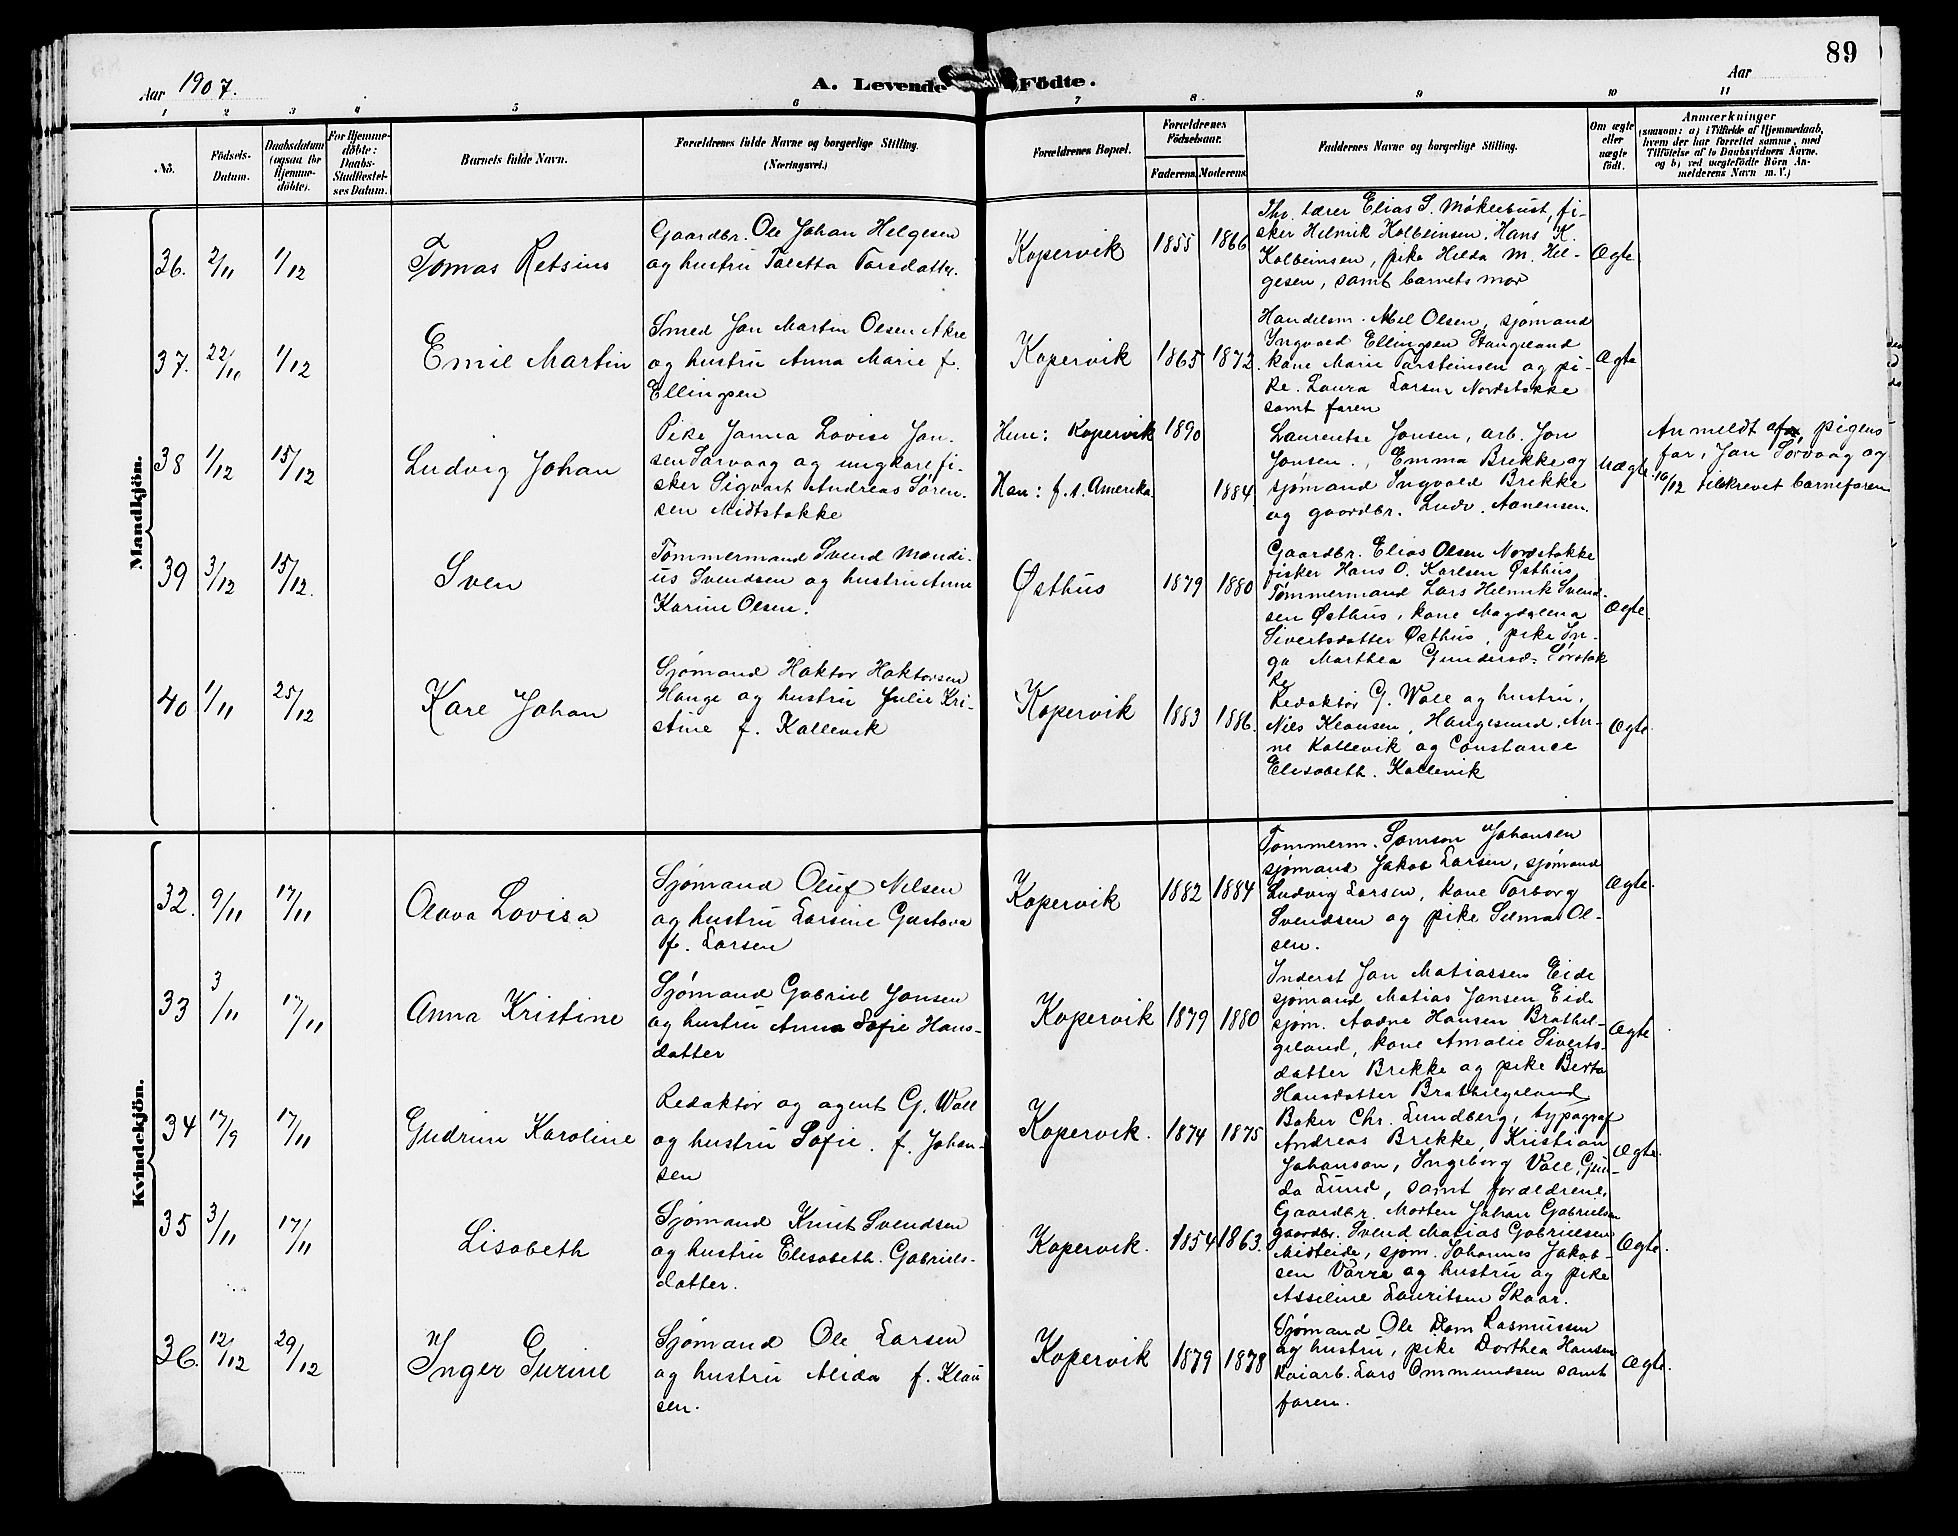 89
Aar 1907.
A. Levende Födte.
Aar
1 2 3 4 5 6 7 8 9 10 11
No.
Födsels-Datum.
Daabsdatum (ogsaa for Hjemme-döbte).
For Hjemme-döbte: Daabs-Stadfæstel-ses Datum.
Barnets fulde Navn.
Forældrenes fulde Navne og borgerlige Stilling.
(Næringsvei.)
Forældrenes Bopæl.
Forældrenes Födselsaar.
Faderens. Moderens.
Faddernes Navne og borgerlige Stilling.
Om ægte eller uægte födt.
Anmærkninger
(saasom: a) i Tilfælde af Hjemmedaab,
hvem der har forrettet samme, med
Tilföielse af to Daabsvidners Navne.
og b) ved uægtefödte Börn An-
melderens Navn m. V.)
Mandkjön.
36. 2/11 1/12
Tomas Retsius
Gaardbr. Ole Johan Helgesen
og hustru Taletta Tarsdatter.
Kopervik 1855 1866
lærer Elias S. Møklebust, fi-
sker Helmik Kolbeinsen, Hans K.
Kolbeinsen, pike Hilda M. Hel-
gesen, samt barnets mor
Ægte
37. 22/11 1/12
Emil Martin
Smed Jan Martin Olsen Akre
og hustru Anna Marie f.
Ellingsen
Kopervik 1865 1872.
Handelsm. Abel Olsen, sjømand
Ingvald Ellingsen Stangeland
kone Marie Torsteinsen og pi-
ke. Laura Larsen Nordstokke
samt faren
Ægte
38 1/12 15/12
Ludvig Johan
Pike Janna Lovise Jan-
sen Sørvaag og ungkarl fi-
sker Sigvart Andreas Søren-
sen Midtstokke
Hun: Kopervik 1890
Han: f. t. Amerika 1884.
Laurentse Jonsen, arb. Jon
Jonsen., Emma Brekke og
sjømand Ingvald Brekke
og gaardbr. Ludv. Aanensen.
Uægte.
Anmeldt af pigens
far, Jan Sørvaag og
10/12 tilskrevet barnefaren
39 3/12 15/12.
Sven
Tømmermand Svend Mandi-
us Svendsen og hustru Anne
Karine Olsen.
Østhus 1879 1880
Gaardbr. Elias Olsen Nordstokke
fisker Hans O. Karlsen Østhus,
Tømmermand Lars Helmik Svend-
sen Østhus, kone Magdalena
Sivertsdatter Østhus, pike In-
ga Marthea Gundersd. Sørstok
ke
Ægte.
40 1/11 25/12
Kare Johan
Sjømand Haktor Haktorsen
Hauge og hustru Julie Kri-
stine f. Kallevik
Kopervik 1883 1886.
Redaktør G. Wall og hustru,
Niels Klausen, Haugesund, An-
ne Kallevik og Constance
Elisabeth. Kallevik
Ægte.
Kvindekjön.
32. 9/11 17/11
Olava Lovisa
Sjømand Oluf Nilsen
og hustru Larsine Gustava
f. Larsen
Kopervik 1882 1884
Tømmerm. Samson Johansen
sjømand Jakob Larsen, sjømand
Ludvig Larsen, kone Torborg
Svendsen og pike Selma Ol-
sen.
Ægte.
33 3/11 17/11
Anna Kristine
Sjømand Gabriel Jonsen
og hustru Anna Sofie Hans-
datter
Kopervik 1879 1880
Inderst Jan Matiassen Eide
sjømand Matias Jansen Eide
sjøm. Aadne Hansen Brathel-
geland, kone Amalie Siverts-
datter Brekke og pike Berta
Hansdatter Brathelgeland
Ægte
34 17/9 17/11
Gudrun Karoline
Redaktør og agent G. Wall
og hustru Sofie. f. Johan-
sen
Kopervik. 1874 1875
Baker Chr. Lundberg, typograf
Andreas Brekke, Kristian
Johanson, Ingeborg Vall, Gun-
da Lund, samt forældrene.
Ægte.
35 3/11 17/11
Lisabeth
Sjømand Knut Svendsen
og hustru Elisabeth. Gabriels-
datter.
Kopervik. 1854 1863.
Gaardbr. Morten Johan Gabrielsen
gaardbr. Svend Matias Gabrielsen
Midteide, sjøm. Johannes Jakob-
sen Varre og hustru og pike
Asseline Lauritsen Skaar.
Ægte.
36. 12/12 29/12
Inger Gurine
Sjømand Ole Larsen
og hustru Alida f. Klau
sen.
Kopervik 1879 1878
Sjømand Ole Dam Rasmussen
og hustru, pike Dorthea Hansen
Kaiarb. Lars Ommundsen samt
faren.
Ægte.